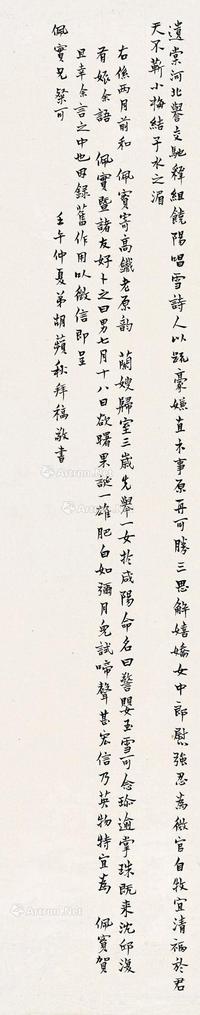 遺棠河北譽交馳釋組饒陽唱雪詩人以疏豪嫌直木事原再可勝三思解嬉嬌女中郎慰強忍為微官自牧宜清福於君
天不靳小梅結子水之湄
右係兩月前和 佩寶寄高鐵老原韵 蘭嫂歸室三歲先舉一女於咸陽命名曰 嬰玉雪可念珍逾掌珠既来沈邱復
有娠余語 佩寶暨諸友好卜之曰男七月十八日欲曙果誕一雄肥白如彌月兒試啼聲甚宏信乃英物特宜為 佩寶賀
且幸余言之中也因錄舊作用以徵信即呈
佩寶兄粲可
壬午仲夏弟胡蘋秋拜稿敬書
Artron.Net
Artron.Net
Artron.Net
Artron.Net